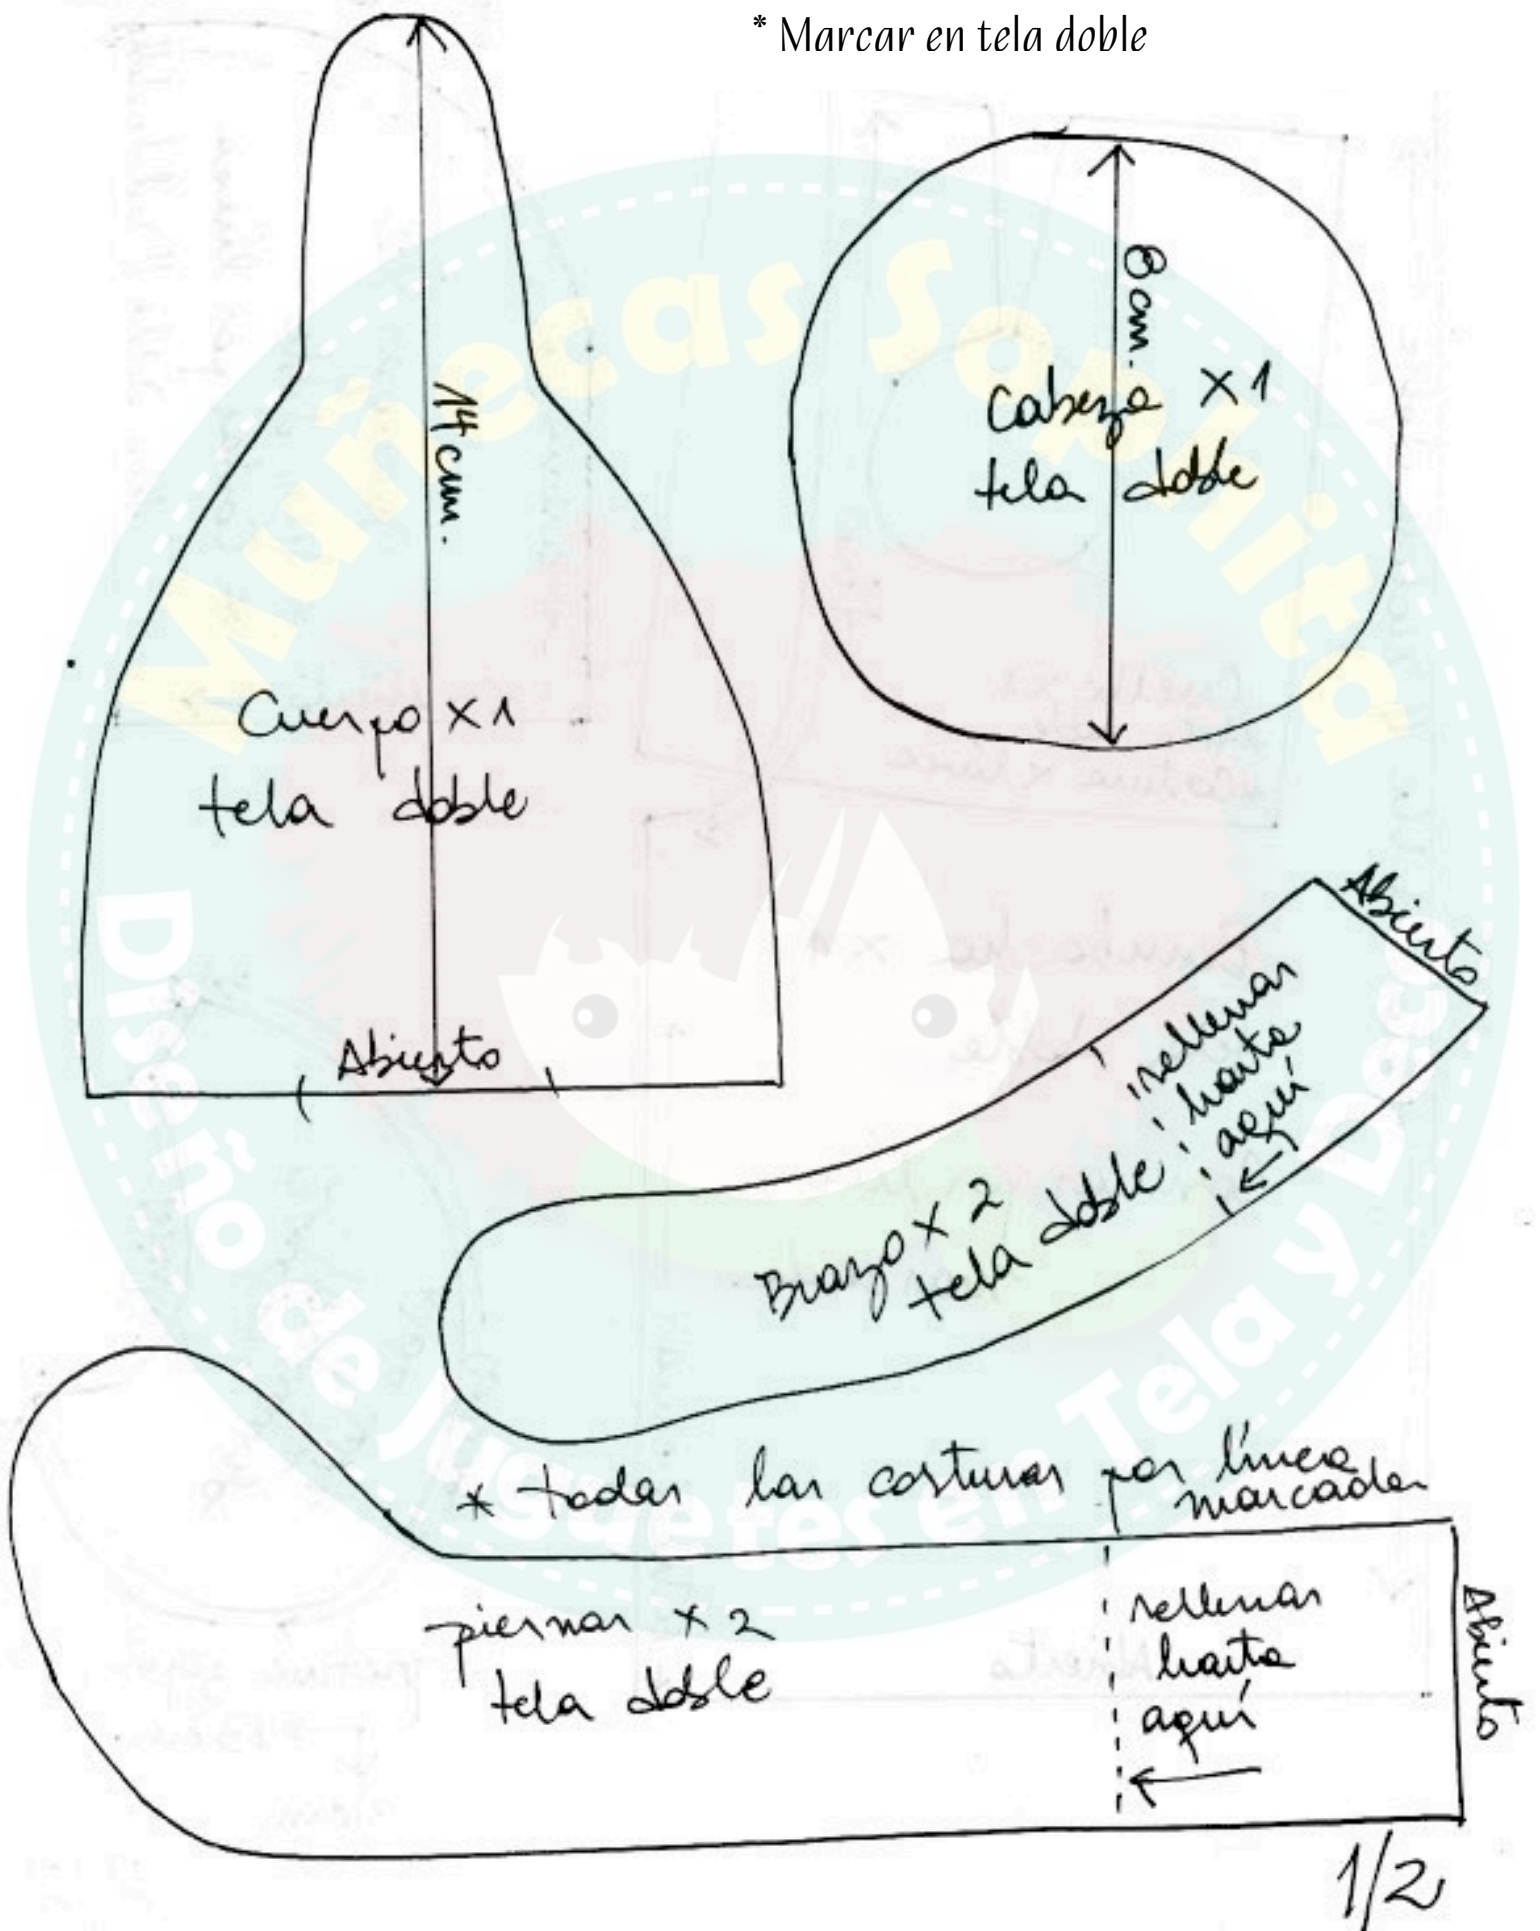 * Marcar en tela doble
14 cm.
Cuerpo x 1
tela doble
Abierto
8 cm.
Cabeza x 1
tela doble
Abierto
rellenar
hasta
aquí
Brazo x 2
tela doble
* todas las costuras por línea
marcada
piernas x 2
tela doble
rellenar
hasta
aquí
Abierto
1/2
Muñecas Sophita
Diseño de Juguetes en Tela y Deco